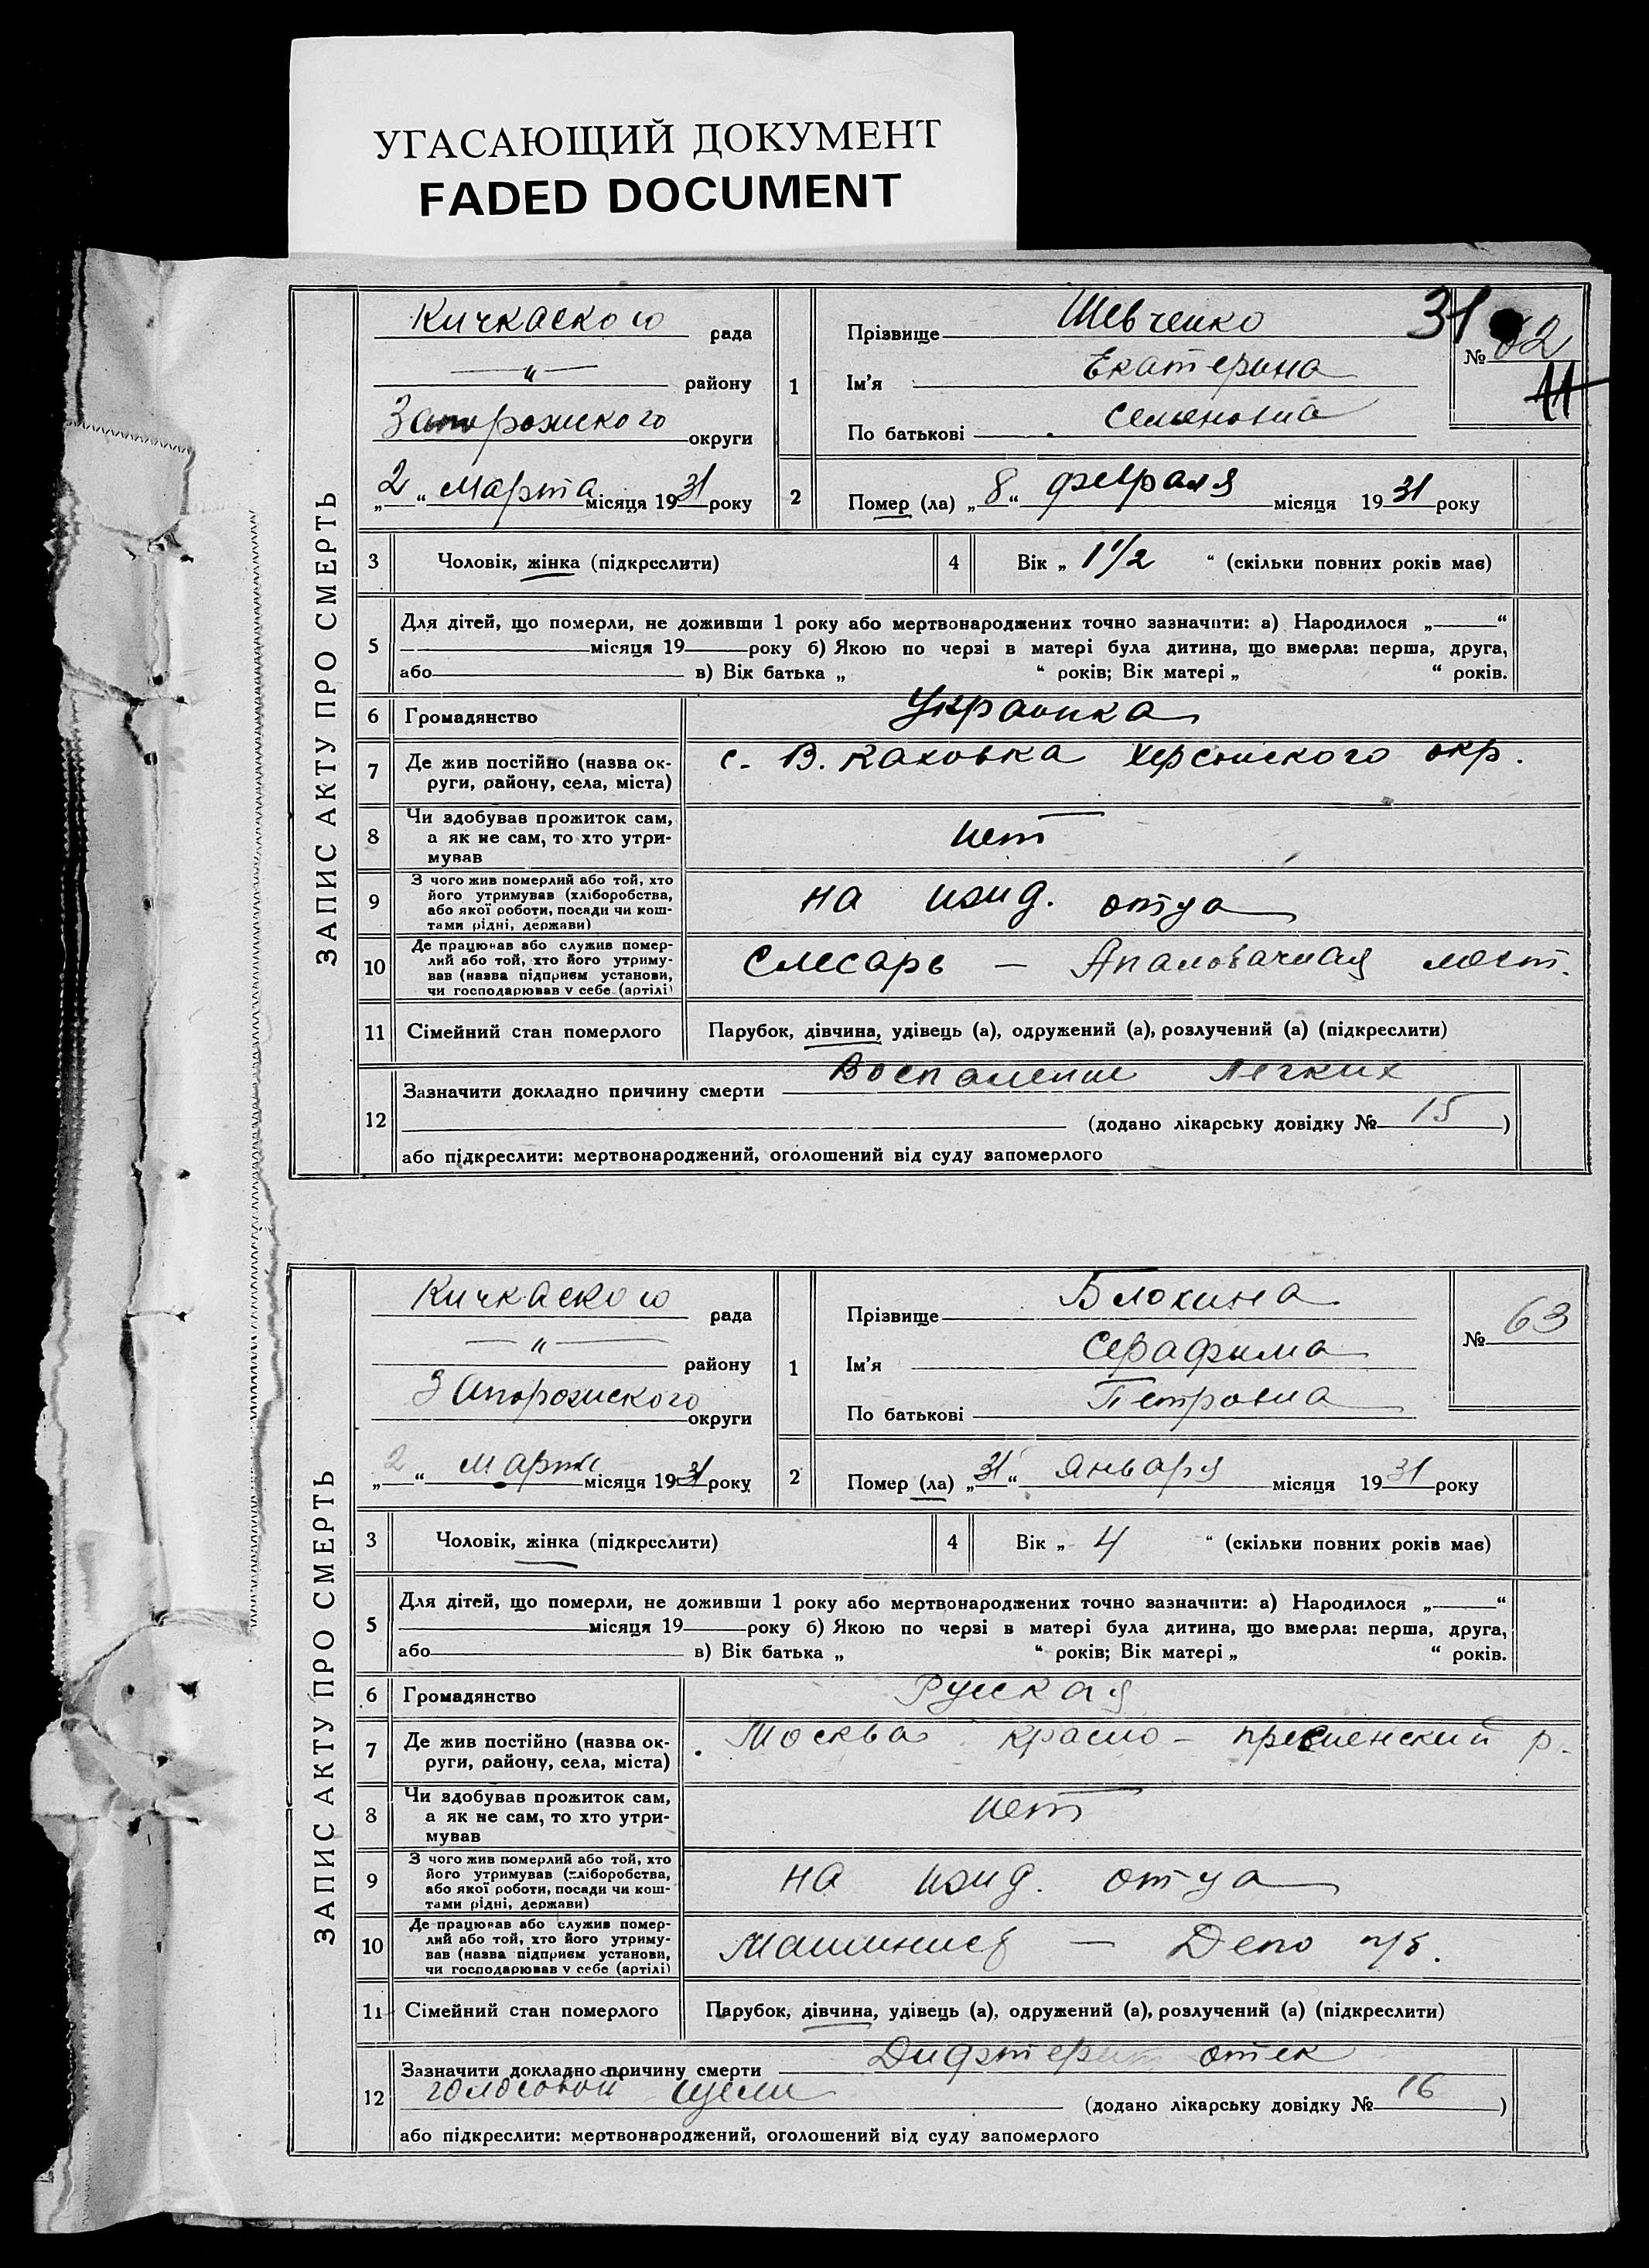 УГАСАЮЩИЙ ДОКУМЕНТ
FADED DOCUMENT
31
ЗАПИС АКТУ ПРО СМЕРТЬ
Кичкаского рада
— „ — району
Запорожского округи
„2“ марта місяця 1931 року
1
Прізвище Шевченко
Ім'я Екатерина
По батькові Семеновна
№ 62
11
2
Помер (ла) „8“ февраля місяця 1931 року
3 Чоловік, жінка (підкреслити)
4 Вік „ 1 1/2 “ (скільки повних років має)
5 Для дітей, що померли, не доживши 1 року або мертвонароджених точно зазначити: а) Народилося „ “
місяця 19 року б) Якою по черзі в матері була дитина, що вмерла: перша, друга,
або в) Вік батька „ “ років; Вік матері „ “ років.
6 Громадянство Украинка
7 Де жив постійно (назва ок-
руги, району, села, міста)
с. В. Каховка Херсонского окр.
8 Чи здобував прожиток сам,
а як не сам, то хто утри-
мував
нет
9 З чого жив померлий або той, хто
його утримував (хліборобства,
або якої роботи, посади чи кош-
тами рідні, держави)
на ижд. отца
10 Де працював або служив помер-
лий або той, хто його утриму-
вав (назва підприєм установи,
чи господарював у себе (артілі)
Слесарь —
11 Сімейний стан померлого Парубок, дівчина, удівець (а), одружений (а), розлучений (а) (підкреслити)
12 Зазначити докладно причину смерти Воспаление легких
(додано лікарську довідку № 15 )
або підкреслити: мертвонароджений, оголошений від суду запомерлого
ЗАПИС АКТУ ПРО СМЕРТЬ
Кичкаского рада
— „ — району
Запорожского округи
„2“ марта місяця 1931 року
1
Прізвище Блохина
Ім'я Серафима
По батькові Петровна
№ 63
2
Помер (ла) „31“ января місяця 1931 року
3 Чоловік, жінка (підкреслити)
4 Вік „ 4 “ (скільки повних років має)
5 Для дітей, що померли, не доживши 1 року або мертвонароджених точно зазначити: а) Народилося „ “
місяця 19 року б) Якою по черзі в матері була дитина, що вмерла: перша, друга,
або в) Вік батька „ “ років; Вік матері „ “ років.
6 Громадянство Русская
7 Де жив постійно (назва ок-
руги, району, села, міста)
Москва красно-пресненский р.
8 Чи здобував прожиток сам,
а як не сам, то хто утри-
мував
нет
9 З чого жив померлий або той, хто
його утримував (хліборобства,
або якої роботи, посади чи кош-
тами рідні, держави)
на ижд. отца
10 Де працював або служив помер-
лий або той, хто його утриму-
вав (назва підприєм установи,
чи господарював у себе (артілі)
Машинист — Депо
11 Сімейний стан померлого Парубок, дівчина, удівець (а), одружений (а), розлучений (а) (підкреслити)
12 Зазначити докладно причину смерти Дифтерит отек
голосовой щели (додано лікарську довідку № 16 )
або підкреслити: мертвонароджений, оголошений від суду запомерлого